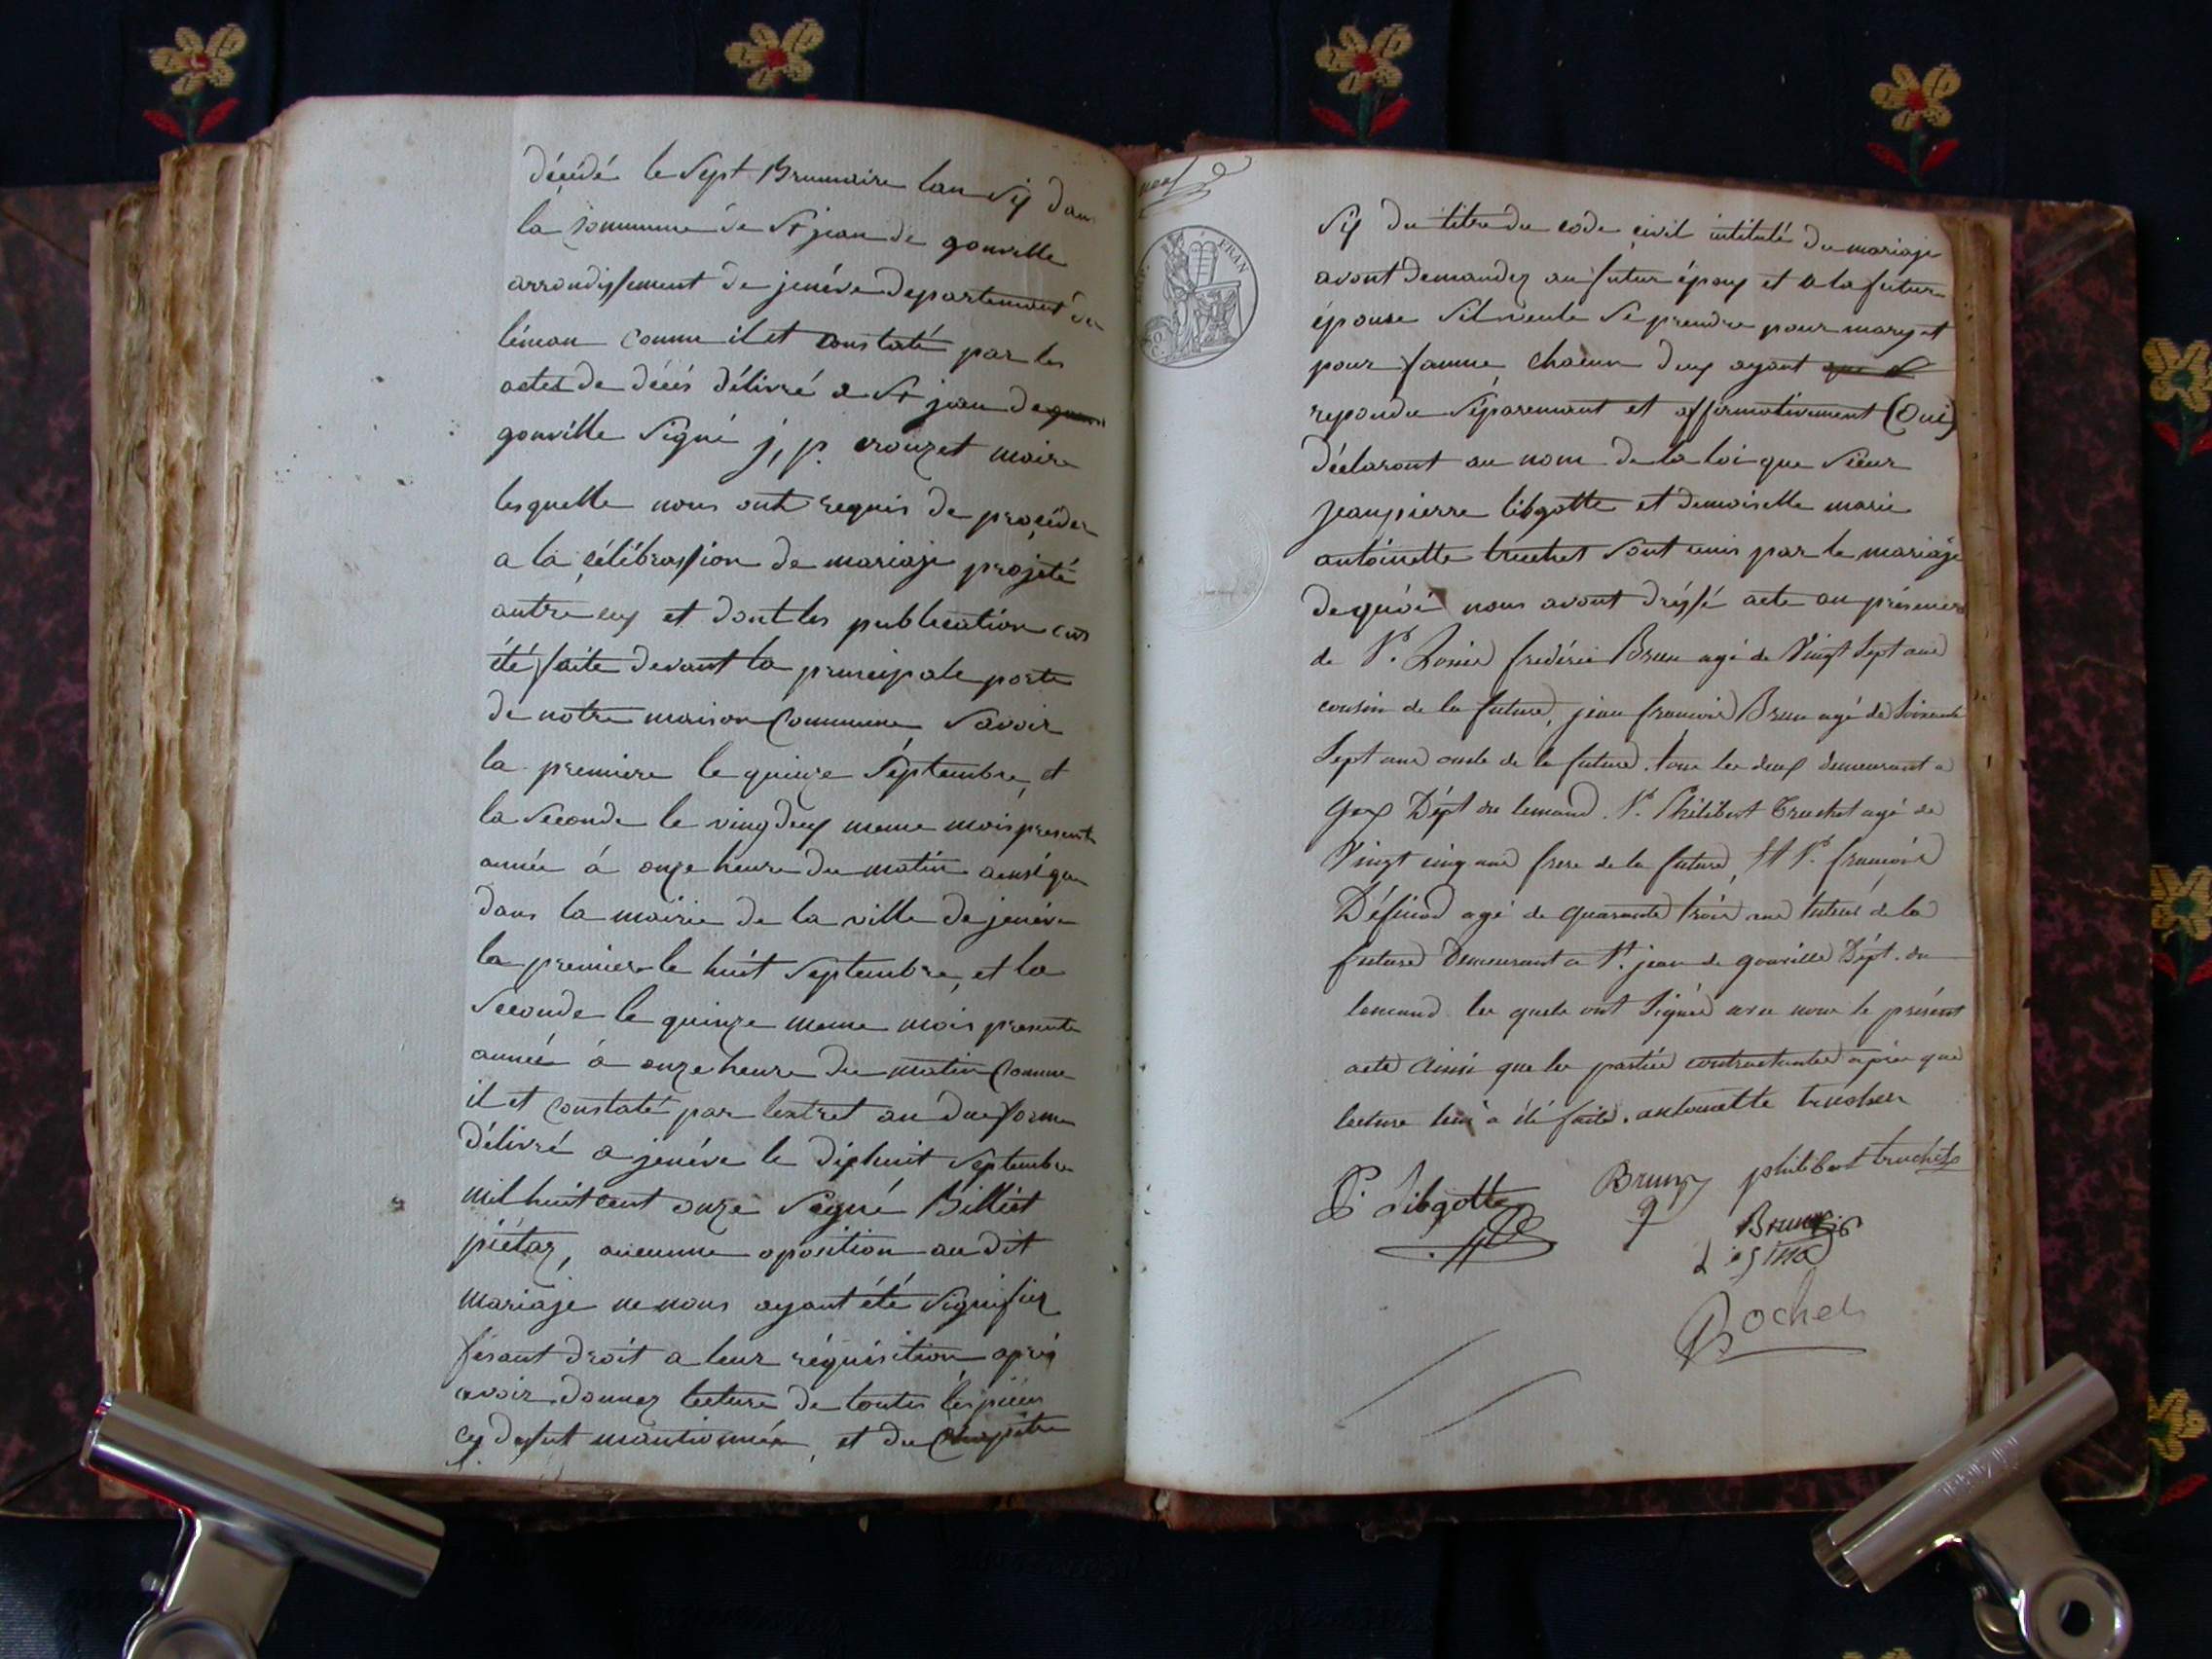 décédé le Sept Brumaire lan Six dans
la Commune de St jean de gonville
arrondissement de jenéve departemant du
léman comme il et constaté par les
actes de décés délivré a St jean de
gonville Signé j, p. crouzet maire
lesquelle nous ont requis de procéder
a la célébrassion de mariaje projeté
antre eux et dont les publication ons
été faite devant la principale porte
de notre maison Commune Savoir
la premiere le quinze Séptembre, et
la Seconde le vingdeux meme mois presente
année á onze heure du matin ainsi que
dans la mairie de la ville de jenéve
la premier le huit Septembre, et la
Seconde le quinze meme mois presente
année á onze heure du matin Comme
il et constaté par lextret an due forme
délivré a jenéve le dixhuit Septembre
mil huit cent onze Signé Billiet
piétaz, aucunne oposition au dit
mariaje ne nous ayant été Signifiez
fesant droit a leur réquisition aprés
avoir donnez lecture de toutes les piéces
cy desut mantionnéz, et du Chapitre
Six du titre du code civil intitulé du mariaje
avont demandez au futur époux et a la future
épouse Sil veule Se prendre pour mary et
pour famme chacun deux ayant
repondu Séparemant et affirmativement (Oui)
déclaront au nom de la loi que Sieur
Jean pierre libgotte et demoiselle marie
antoinette truchet Sont unis par le mariaje
de quoi nous avont dréssé acte an présence
de Sr. Louis fredéric Brun agé de Vingt Sept ans
cousin de la future, jean francois Brun agé de Soixante
Sept ans oncle de la future, tous les deux demeurant a
Gex Dépt du leman. Sr. Philibert Truchet agé de
Vingt cinq ans frere de la future, et Sr. françois
Désinod agé de quarante trois ans tuteur de la
future demeurant a St. jean de gonville Dépt. du
leman les quels ont Signés avec nous le présent
acte ainsi que les parties contractantes après que
lecture leur a été faite. antoinette truchet
P. Libgotte Brun philibert truchet
Brun
Rochet